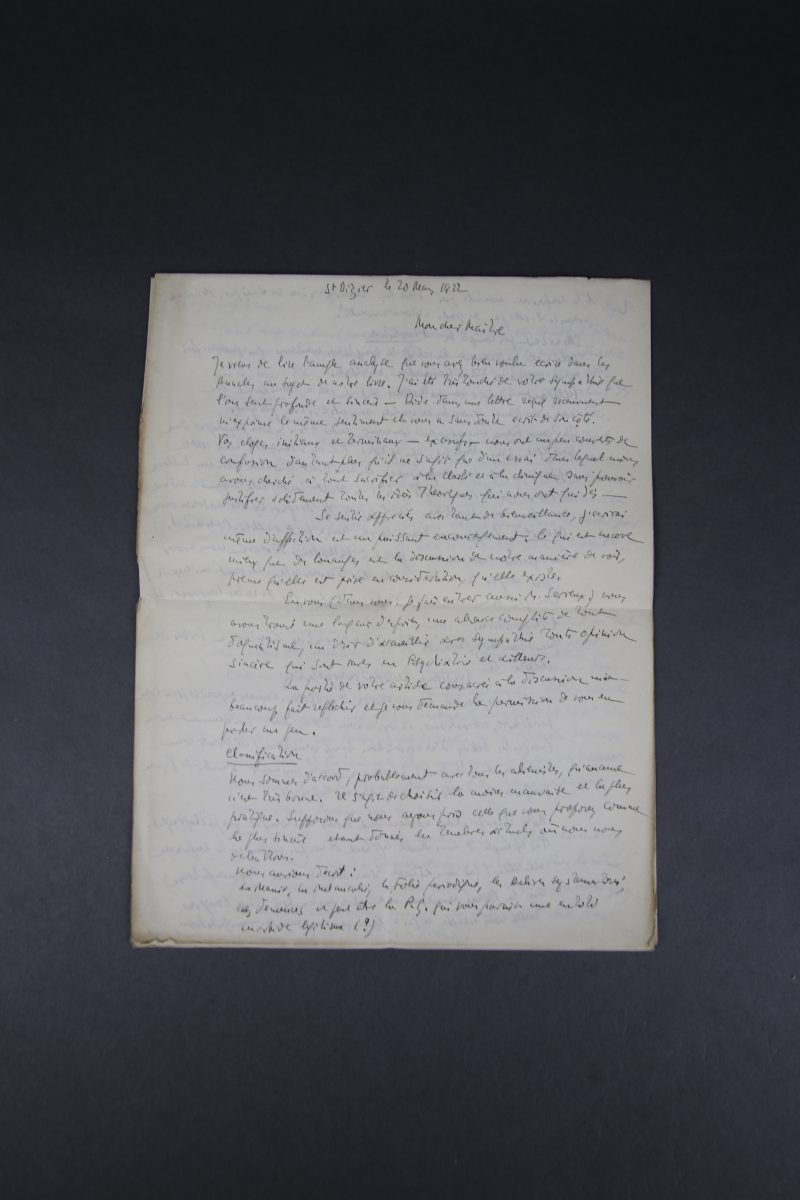 St Dizier le 20 Mars 1922
Mon cher Maître
Je viens de lire l'ample analyse que vous avez bien voulu écrire dans les
Annales au sujet de notre livre. J'ai été très touché de votre sympathie que
l'on sent profonde et sincère — Dide dans une lettre reçue récemment
m'exprime le même sentiment et vous a sans doute écrit de son côté.
Vos éloges initiaux et terminaux — nous ont un peu couverts de
confusion d'autant plus qu'il ne s'agit que d'un essai dans lequel nous
avons cherché à tout sacrifier à la clarté et à la clinique sans pouvoir
justifier solidement toutes les idées théoriques qui nous ont guidés —
Se sentir apprécié avec tant de bienveillance, j'écrirai
même d'affection est un puissant encouragement. Ce qui est encore
mieux que des louanges est la discussion de notre manière de voir,
preuve qu'elle est prise en considération, qu'elle existe.
En vous (dans vous je fais entrer aussi M. Serieux) nous
avons trouvé une largeur d'esprit, une absence complète de tout
dogmatisme, un désir d'accueillir avec sympathie toute opinion
sincère qui sont rares en Psychiatrie et ailleurs.
La partie de votre article consacrée à la discussion m'a
beaucoup fait réfléchir et je vous demande la permission de vous en
parler un peu.
Classification
Nous sommes d'accord, probablement avec tous les aliénistes, qu'aucune
n'est très bonne. Il s'agit de choisir la moins mauvaise et la plus
pratique. Supposons que nous ayons pris celle que vous proposez comme
la plus sincère étant données les ténèbres actuelles où nous nous
débattons.
Nous aurions écrit :
La Manie, la mélancolie, la Folie périodique, les Délires systématisés,
les démences et peut être la P.G. qui vous paraît une entité
morbide légitime (?)